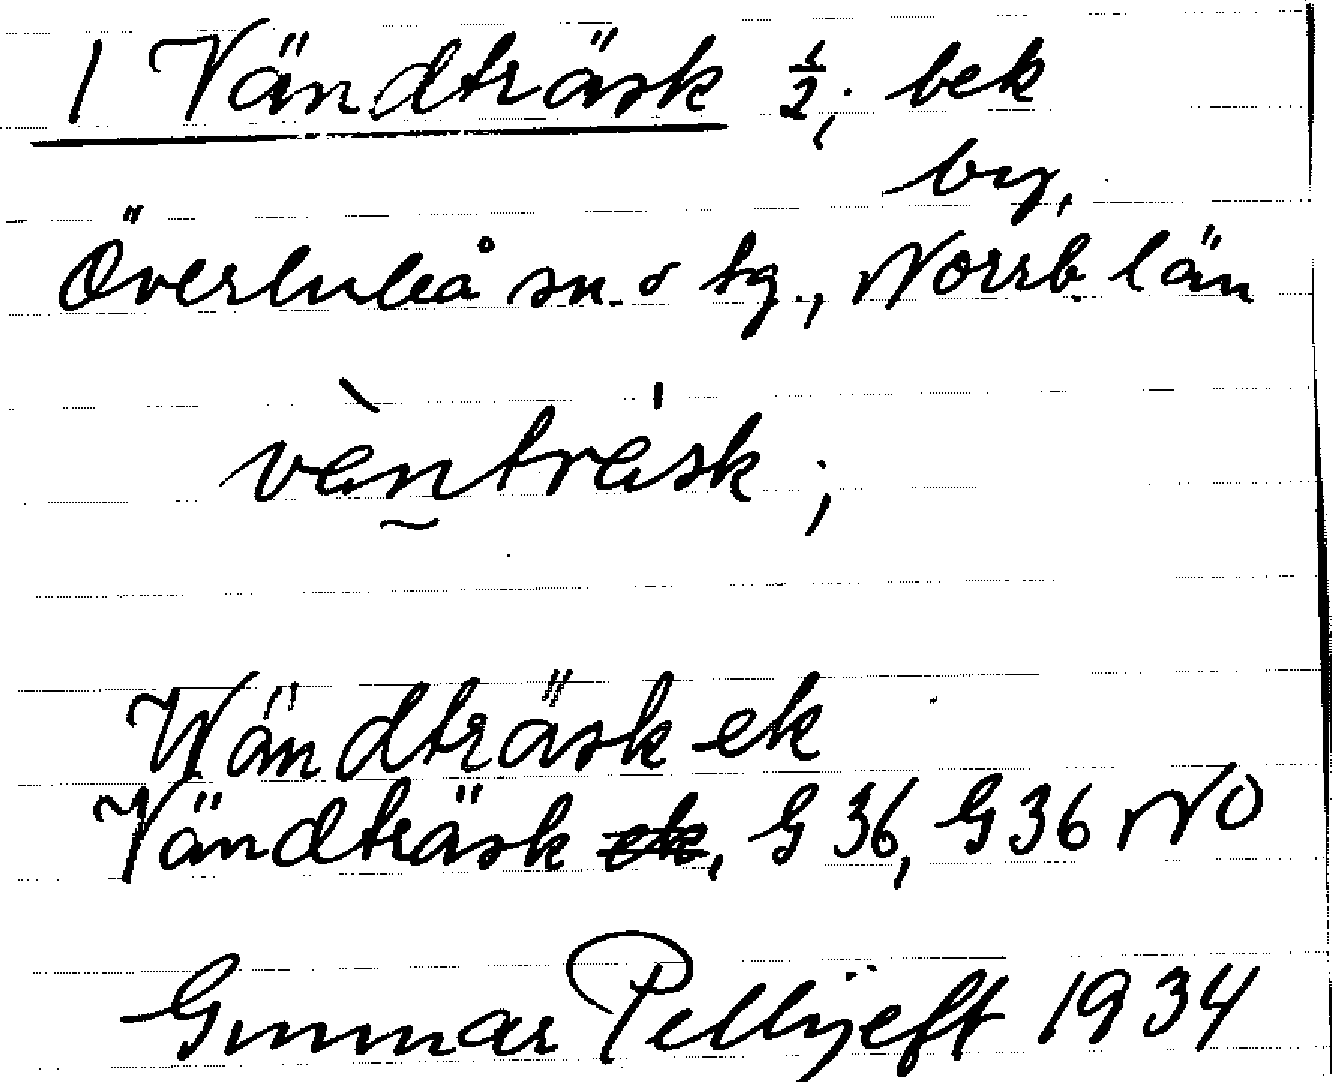 1 Vändträsk 1/2; bek
by,
Överluleå sn. o tg., Norrb. län
vèntrask;
Wändträsk ek
Vändträsk ek, G 36, G 36 NO
Gunnar Pellijeff 1934